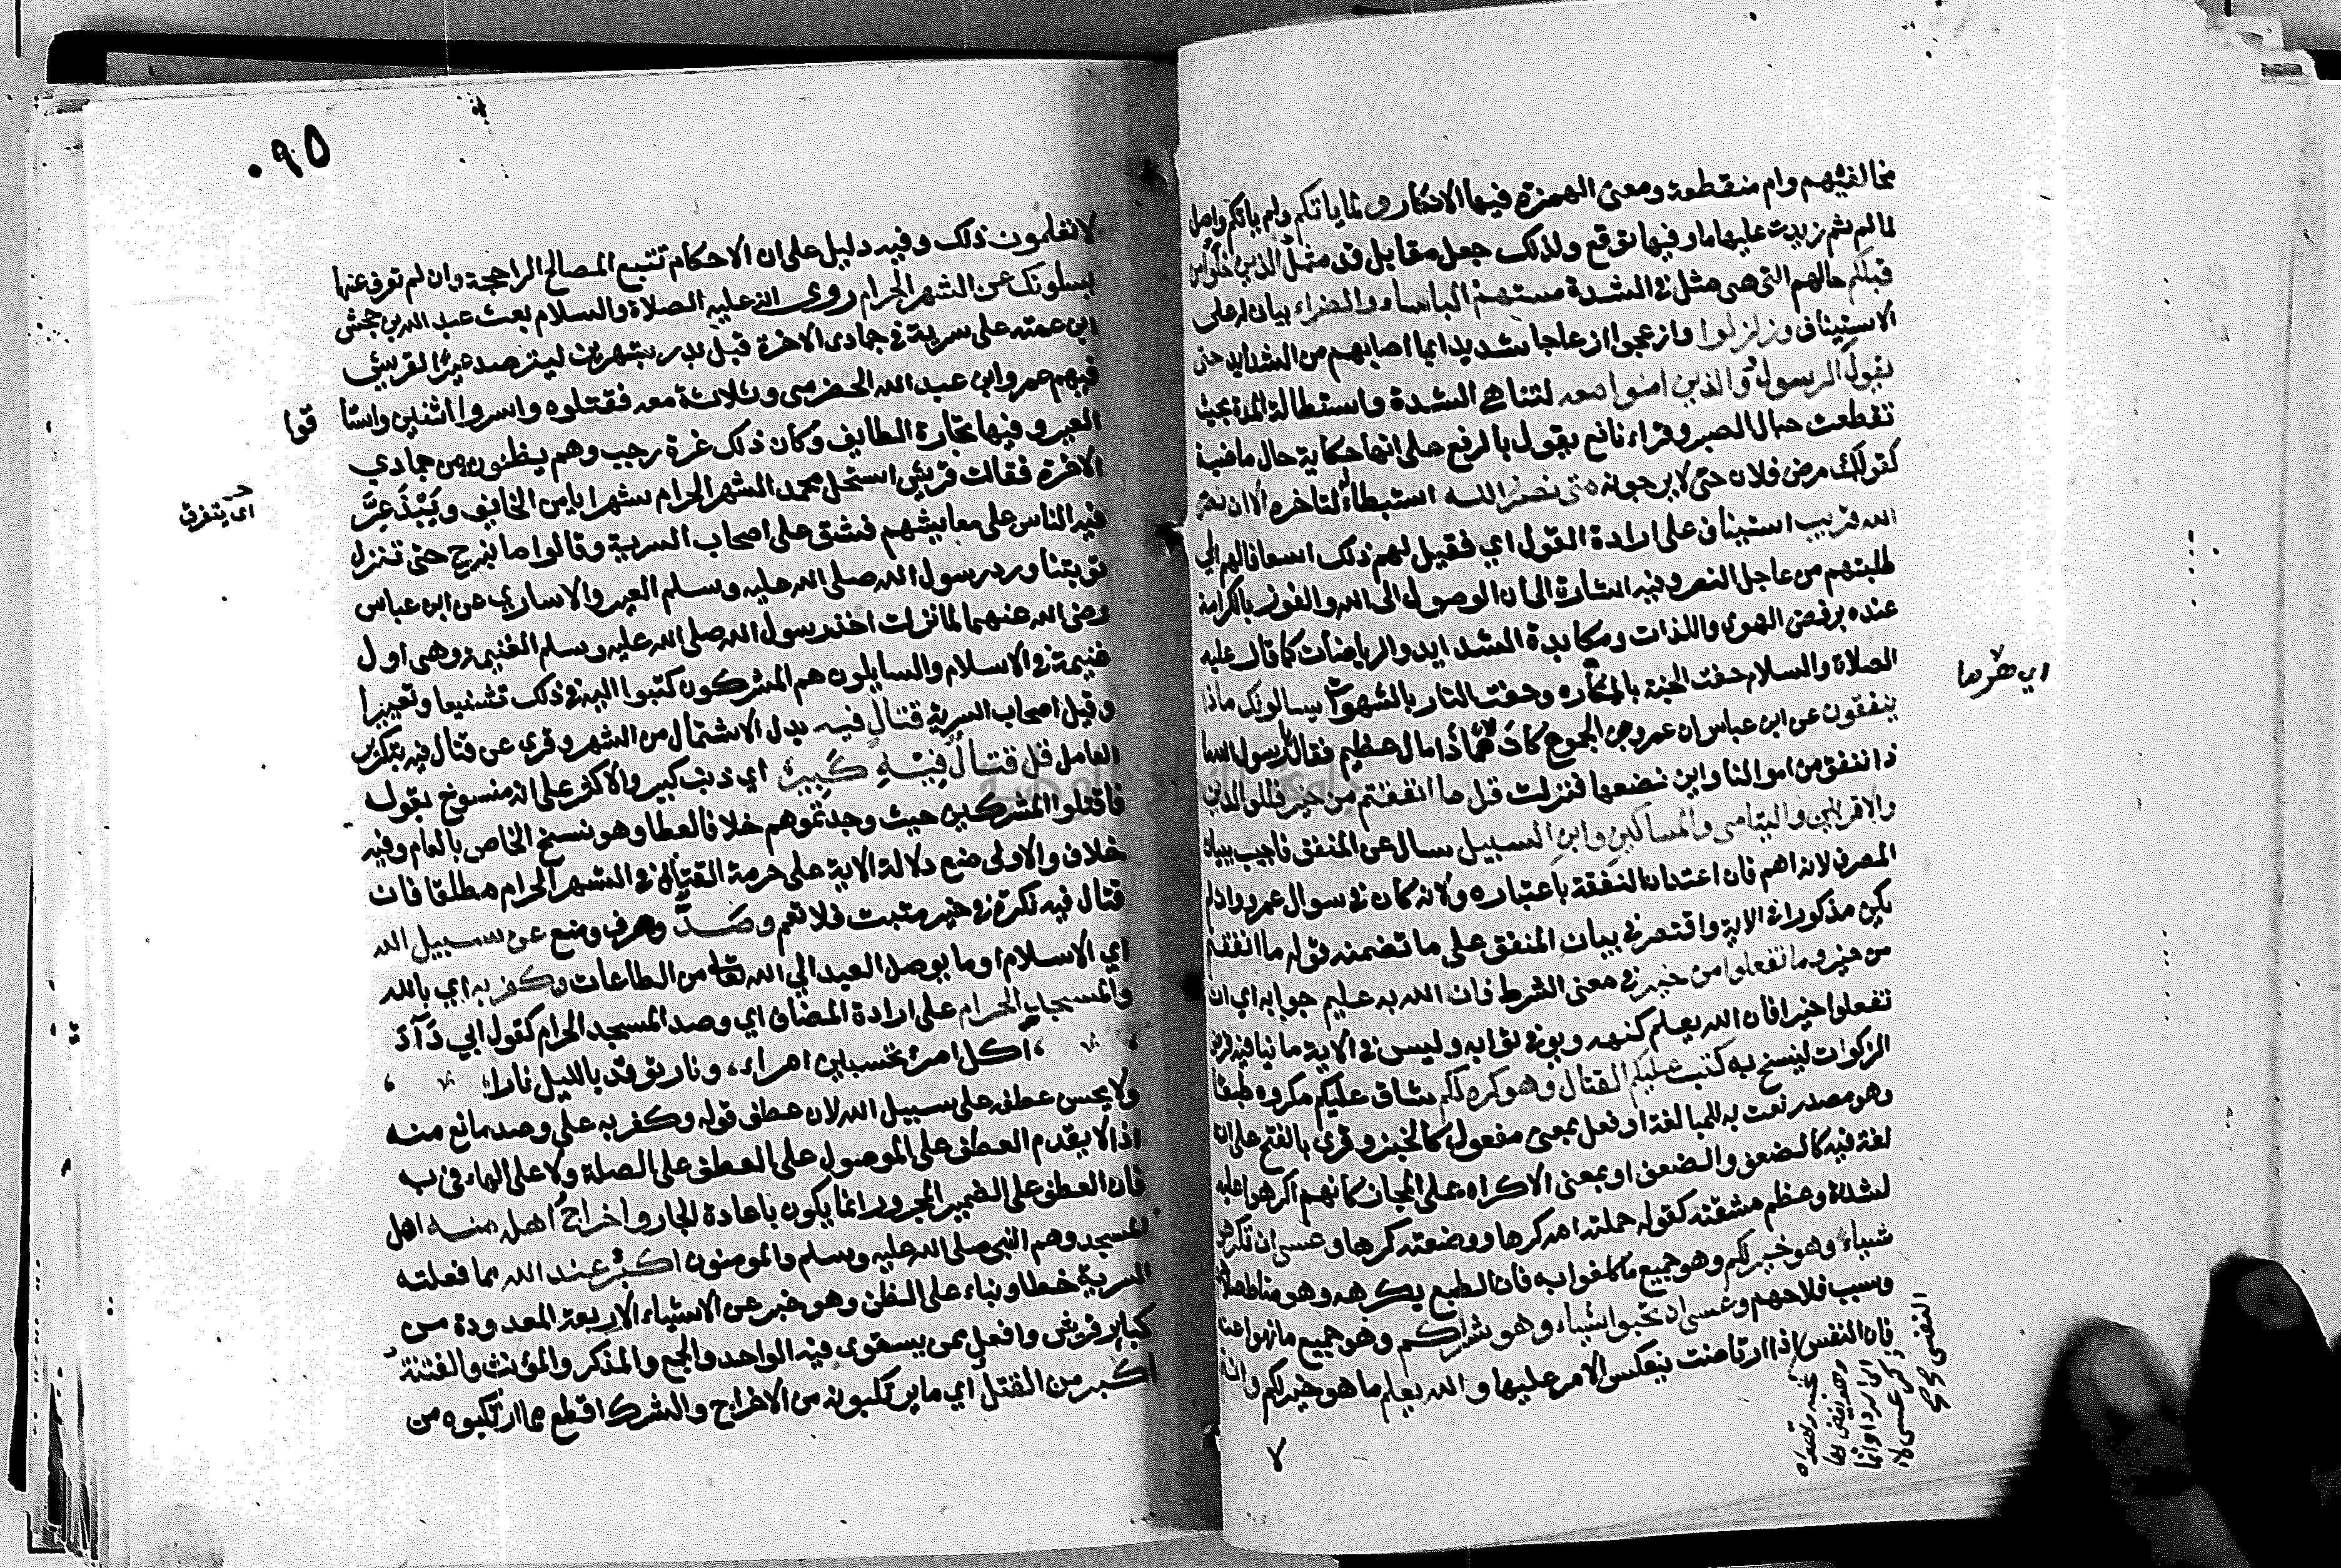 مخالفيهم وام منقطعة ومعنى الهمزة فيها الانكار ولما ياتكم ولم ياتكم واصل
لما لم ثم زيدت عليها ما وفيها توقع ولذلك جعل مقابل قد مثل الذين خلوا من
قبلكم حالهم التى هى مثل فى الشدة مستهم الباساء والضراء بيان له على
الاستيناف وزلزلوا وازعجوا ازعاجا شديدا بما اصابهم من الشدايد حتى
يقول الرسول والذين امنوا معه لتناهى الشدة واستطالة المدة بحيث
تقطعت حبال الصبر وقراء نافع يقول بالرفع على انها حكاية حال ماضية
كقولك مرض فلان حتى لا يرجونه متى نصر الله استبطاء لتاخره الا ان نصر
الله قريب استيناف على ارادة القول اي فقيل لهم ذلك اسعافا لهم الى
طلبتهم من عاجل النصر وفيه اشارة الى ان الوصول الى الله والفوز بالكرامة
عنده برفض الهوى واللذات ومكابدة الشدايد والرياضات كما قال عليه
الصلاة والسلام حفت الجنة بالمكاره وحفت النار بالشهوات يسالونك ماذا
ينفقون عن ابن عباس ان عمرو بن الجموح كان هما ذا مال عظيم فقال يرسول الله ما
ذا ننفق من اموالنا واين نضعها فنزلت قل ما انفقتم من خير فللوالدين
والاقربين واليتامى والمساكين وابن السبيل سال عن المنفق فاجيب ببيان
المصرف لانه اهم فان اعتداد النفقة باعتباره ولانه كان فى سوال عمرو وان لم
يكن مذكورا فى الاية واقتصر فى بيان المنفق على ما تضمنه قوله ما انفقتم
من خير وما تفعلوا من خير فى معنى الشرط فان الله به عليم جوابه اي ان
تفعلوا خيرا فان الله يعلم كنهه ويوفى ثوابه وليس فى الاية ما ينافيه فرض
الزكوات لينسخ به كتب عليكم القتال وهو كره لكم شاق عليكم مكروه طبعا
وهو مصدر نعت به للمبالغة او فعل بمعنى مفعول كالخبز وقرى بالفتح على ان
لغة فيه كالضعف والضعف او بمعنى الاكراه على المجاز كانهم اكرهوا عليه
لشدة وعظم مشقته كقوله حملته امه كرها ووضعته كرها وعسى ان تكرهوا
شياء وهو خير لكم وهو جميع ما كلفوا به فان الطبع يكرهه وهو مناط صلاحهم
وسبب فلاحهم وعسى ان تحبوا شياء وهو شر لكم وهو جميع ما نهوا عنه
فان النفس اذا ارتاضت ينعكس الامر عليها والله يعلم ما هو خير لكم وانتم
اي هرما
٧
٠٩٥
لا تعلمون ذلك وفيه دليل على ان الاحكام تتبع المصالح الراجحة وان لم تعرف عنها
يسلونك عن الشهر الحرام روى انه عليه الصلاة والسلام بعث عبد الله بن جحش
ابن عمته على سرية فى جمادى الاخرة قبل بدر بشهرين ليترصد عيرا لقريش
فيهم عمرو ابن عبد الله الحضرمى وثلاثة معه فقتلوه واسروا اثنين واستا
قوا
العير وفيها تجارة الطايف وكان ذلك غرة رجب وهم يظنونه من جمادي
الاخرة فقالت قريش استحل محمد الشهر الحرام شهرا يامن الخايف ويبذعر
اى يتفرق
فيه الناس على معايشهم فشق على اصحاب السرية وقالوا ما نبرح حتى تنزل
توبتنا ورد رسول الله صلى الله عليه وسلم العير والاسارى عن ابن عباس
رضى الله عنهما لما نزلت اخذ رسول الله صلى الله عليه وسلم الغنيمة وهى اول
غنيمة فى الاسلام والسايلون هم المشركون كتبوا اليه فى ذلك تشنيعا وتعييرا
وقيل اصحاب السرية قتال فيه بدل الاشتمال من الشهر وقرى عن قتال فيه بتكرير
العامل قل قتال فيه كبير اي ذنب كبير والاكثر على انه منسوخ بقوله
فاقتلوا المشركين حيث وجدتموهم خلافا لعطا وهو نسخ الخاص بالعام وفيه
خلاف والاولى منع دلالة الاية على حرمة القتال فى الشهر الحرام مطلقا فان
قتال فيه نكرة فى خير مثبت فلا تعم وصد وصرف ومنع عن سبيل الله
اي الاسلام او ما يوصل العبد الي الله تعالى من الطاعات وكفر به اي بالله
والمسجد الحرام على ارادة المضاف اي وصد المسجد الحرام كقول ابي دآد
، اكل امرئ تحسبين امراء، ونار توقد بالليل نارا
ولا يحسن عطفه على سبيل الله لان عطف قوله وكفر به على وصد مانع منه
اذ لا يقدم العطف على الموصول على العطف على الصلة ولا على الهاء فى به
فان العطف على الضمير المجرور انما يكون باعادة الجار واخراج اهله منه اهل
المسجد وهم النبى صلى الله عليه وسلم والمومنون اكبر عند الله مما فعلته
السرية خطا وبناء على الظن وهو خبر عن الاشياء الاربعة المعدودة من
كباير قريش وافعل من يستوى فيه الواحد والجمع والمذكر والمؤنث والفتنة
اكبر من القتل اي ما يرتكبونه من الاخراج والشرك افظع مما ارتكبوه من